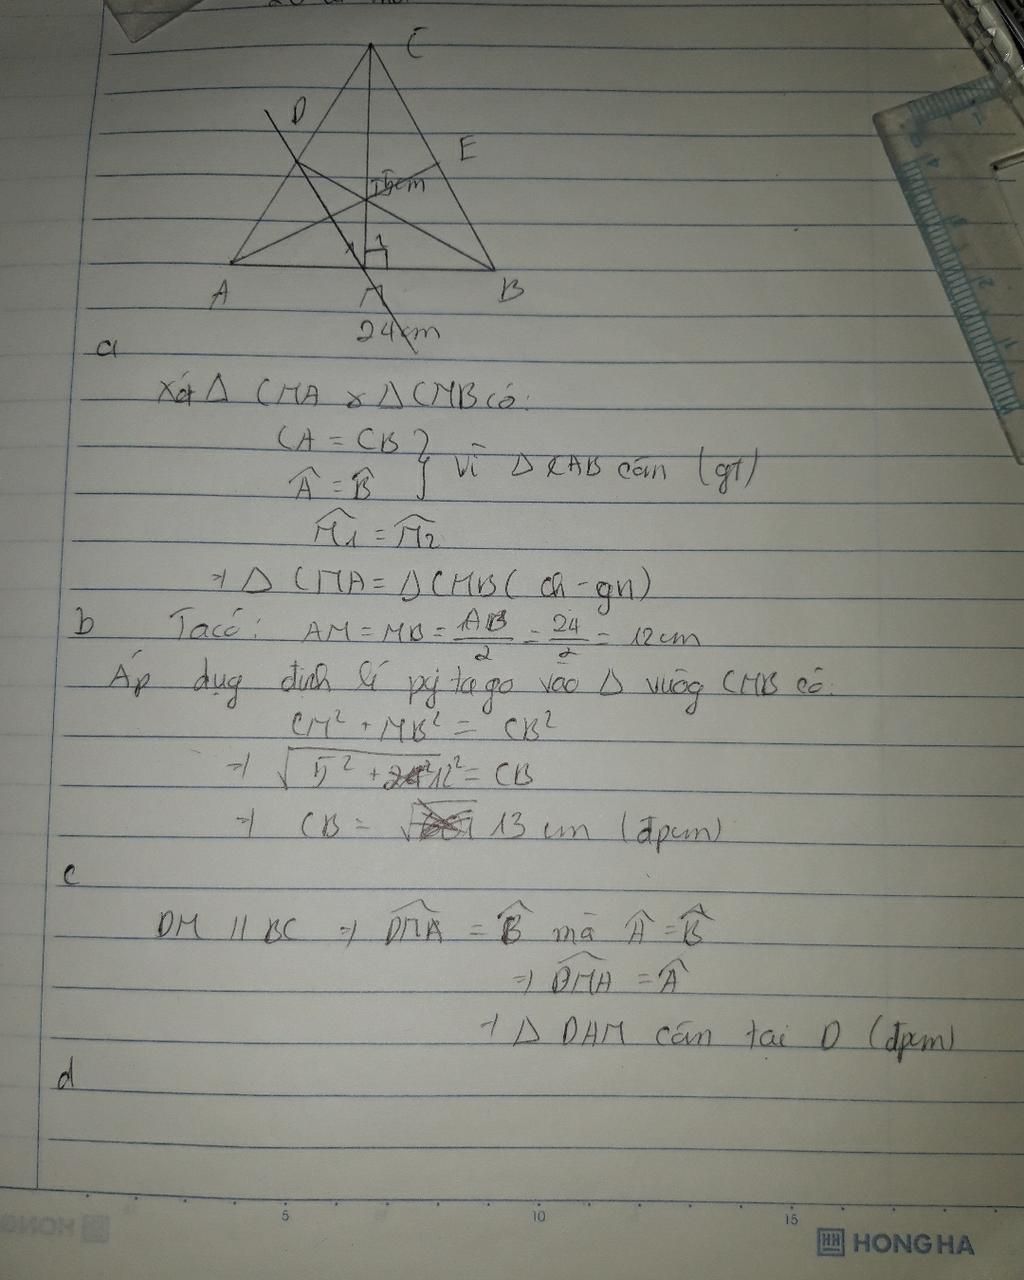 C
D
E
5cm
1
A
M
B
24cm
a
Xét Δ CMA & Δ CMB có:
CA = CB } vì Δ CAB cân (gt)
Â = B̂
M̂1 = M̂2
⇒ Δ CMA = Δ CMB ( ch - gn)
b Ta có: AM = MB = AB/2 = 24/2 = 12cm
Áp dụg định lí pytago vào Δ vuôg CMB có:
CM² + MB² = CB²
⇒ √5² + 12² = CB
⇒ CB = 13 cm (đpcm)
c
DM // BC ⇒ DMA = B̂ mà Â = B̂
⇒ DMA = Â
⇒ Δ DAM cân tại D (đpcm)
d
5 10 15
HONG HA